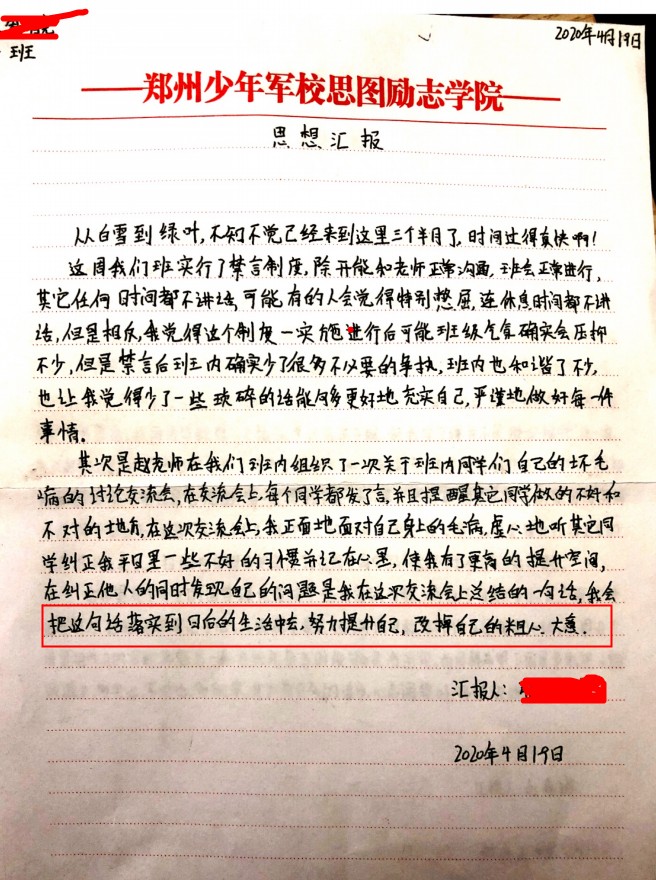 2020年4月19日
班
郑州少年军校思图励志学院
思想汇报
从白雪到绿叶,不知不觉已经来到这里三个半月了,时间过得真快啊!
这周我们班实行了禁言制度,除开能和老师正常沟通,班会正常进行,
其它任何时间都不讲话,可能有的人会觉得特别憋屈,连休息时间都不讲
话,但是相反,我觉得这个制度一实施进行后可能班级气氛确实会压抑
不少,但是禁言后班内确实少了很多不必要的争执,班内也和谐了不少,
也让我觉得少了一些琐碎的话能够更好地充实自己,严谨地做好每一件
事情。
其次是赵老师在我们班内组织了一次关于班内同学们自己的坏毛
病的讨论交流会,在交流会上,每个同学都发了言,并且提醒其它同学做的不好和
不对的地方,在这次交流会上,我正面地面对自己身上的毛病,虚心地听其它同
学纠正我平日里一些不好的习惯并记在心里,使我有了更高的提升空间,
在纠正他人的同时发现自己的问题是我在这次交流会上总结的一句话,我会
把这句话落实到日后的生活中去,努力提升自己,改掉自己的粗心大意.
汇报人:
2020年4月19日